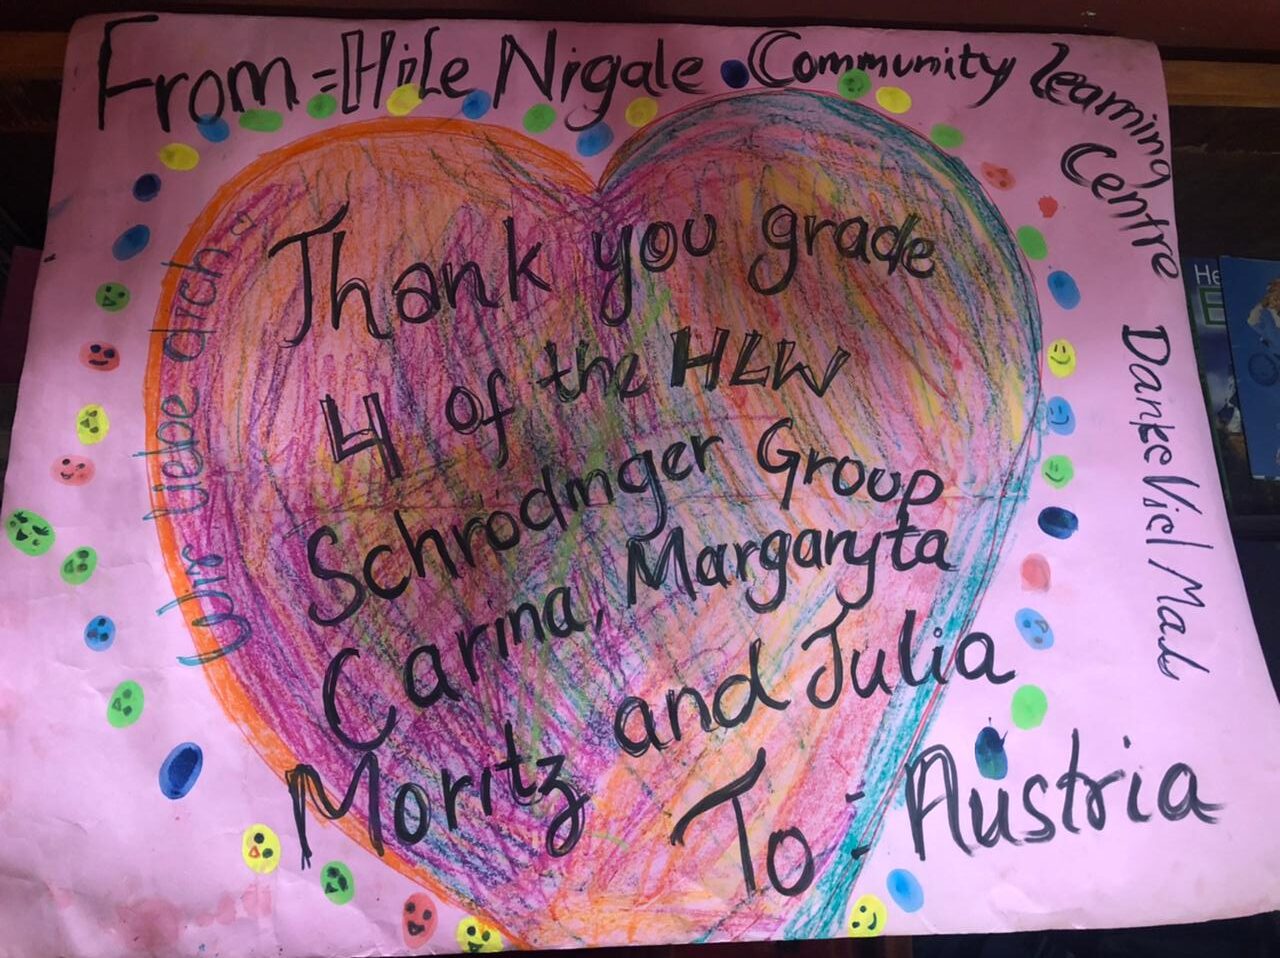 From = Hile Nigale Community Learning Centre
Thank you grade
4 of the HLW
Schrödinger Group
Carina, Margaryta
Moritz and Julia
To :- Austria
Wir liebe dich
Danke Viel Mals
He
E